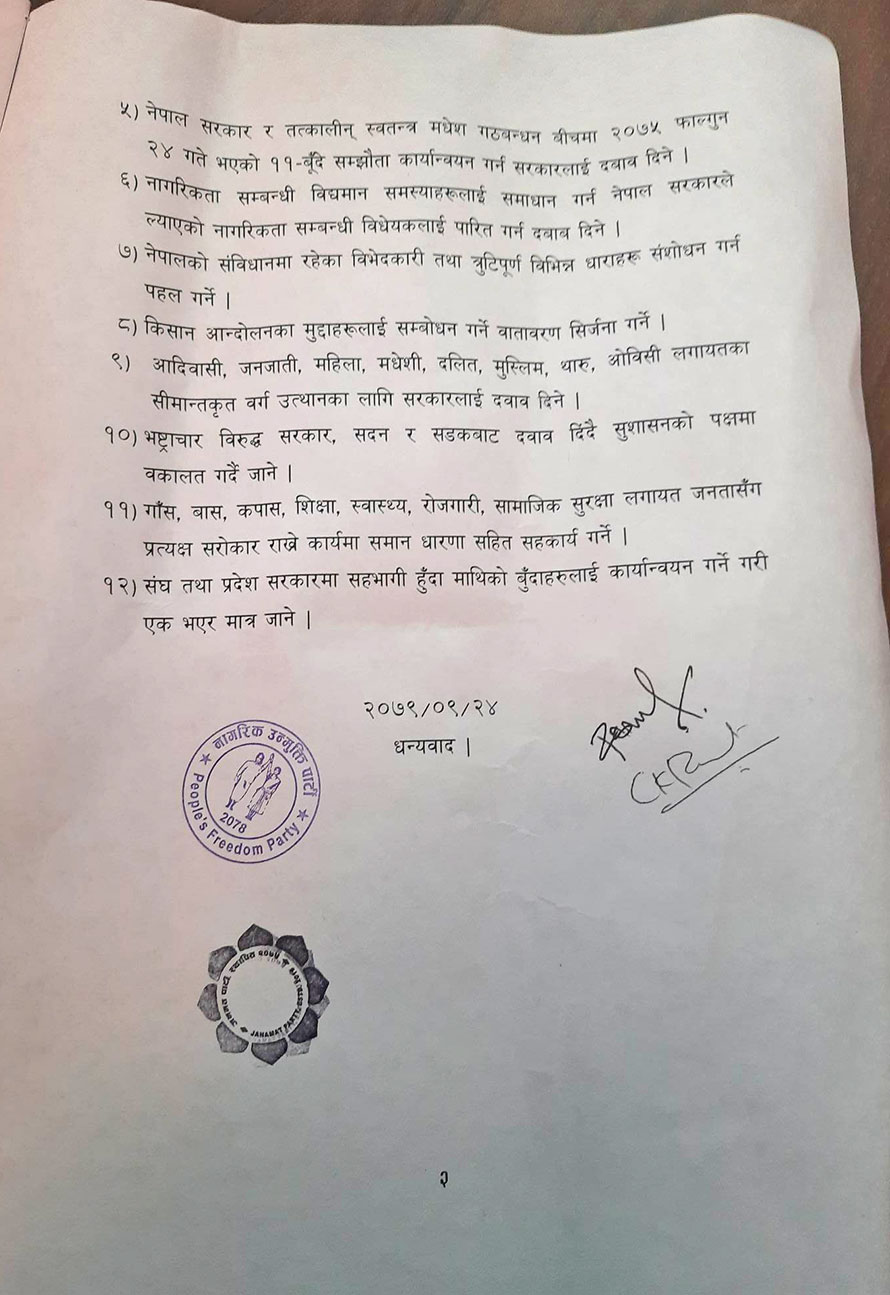 ५) नेपाल सरकार र तत्कालीन् स्वतन्त्र मधेश गठबन्धन बीचमा २०७५ फाल्गुन
२४ गते भएको ११-बूँदे सम्झौता कार्यान्वयन गर्न सरकारलाई दवाव दिने |
६) नागरिकता सम्बन्धी विद्यमान समस्याहरूलाई समाधान गर्न नेपाल सरकारले
ल्याएको नागरिकता सम्बन्धी विधेयकलाई पारित गर्न दबाब दिने |
७) नेपालको संविधानमा रहेका विभेदकारी तथा त्रुटिपूर्ण विभिन्न धाराहरू संशोधन गर्न
पहल गर्ने |
८) किसान आन्दोलनका मुद्दाहरूलाई सम्बोधन गर्ने वातावरण सिर्जना गर्ने |
९) आदिवासी, जनजाती, महिला, मधेशी, दलित, मुस्लिम, थारु, ओविसी लगायतका
सीमान्तकृत वर्ग उत्थानका लागि सरकारलाई दवाव दिने |
१०) भष्ट्राचार विरुद्ध सरकार, सदन र सडकबाट दवाव दिंदै सुशासनको पक्षमा
वकालत गर्दै जाने |
११) गाँस, बास, कपास, शिक्षा, स्वास्थ्य, रोजगारी, सामाजिक सुरक्षा लगायत जनतासँग
प्रत्यक्ष सरोकार राख्ने कार्यमा समान धारणा सहित सहकार्य गर्ने |
१२) संघ तथा प्रदेश सरकारमा सहभागी हुँदा माथिको बुँदाहरुलाई कार्यान्वयन गर्ने गरी
एक भएर मात्र जाने |
२०७९/०९/२४
धन्यवाद |
नागरिक उन्मुक्ति पार्टी
2078
People's Freedom Party
जनमत पार्टी स्थापित २०७५
JANAMAT PARTY ESTD. 2019
२